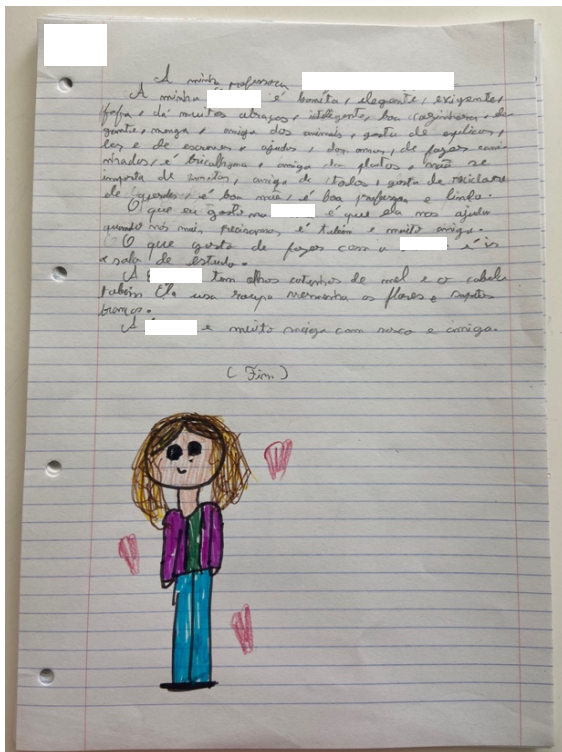 A minha professora
A minha é bonita, elegante, exigente,
fofa, dá muitos abraços, inteligente, boa cozinheira,
meiga, amiga dos animais, gosta de explicar,
ler e de escrever, ajudar, dar amor, de fazer
é bricalhona, amiga das plantas, não se
importa de, amiga de todos, gosta de reciclar
é boa mãe, é boa professora e linda.
O que eu gosto na é que ela nos ajuda
quando nós mais precisamos e é muito amiga.
O que gosto de fazer com a é ir
a sala de estudo.
A tem olhos de mel e o cabelo
Ela usa roupa vermelha as flores e sapatos
brancos.
A é muito meiga com nosco e amiga.
(Fim)